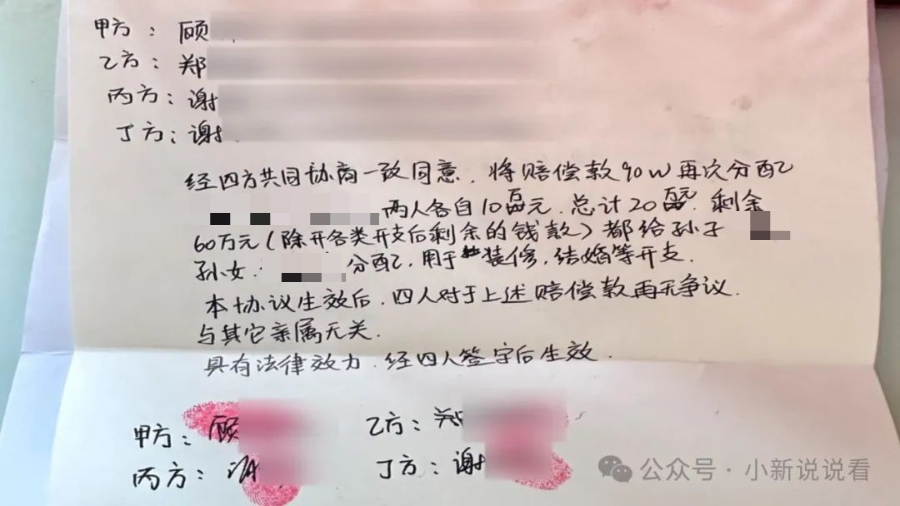 甲方：顾
乙方：郑
丙方：谢
丁方：谢
经四方共同协商一致同意，将赔偿款90W再次分配
两人各自10万元.总计20万.剩余
60万元(除开各类开支后剩余的钱款)都给孙子
孙女.分配,用于装修,结婚等开支.
本协议生效后.四人对于上述赔偿款再无争议.
与其它亲属无关.
具有法律效力.经四人签字后生效.
甲方：顾 乙方：郑
丙方：谢 丁方：谢
公众号·小新说说看